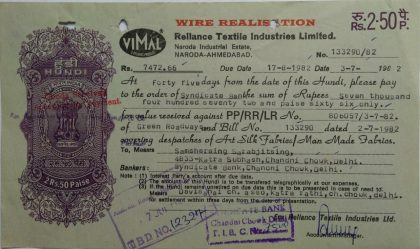 WIRE REALISATION
रु. 2·50 पै.
Rs. P.
VIMAL
Reliance Textile Industries Limited.
Naroda Industrial Estate,
NARODA-AHMEDABAD.
No. 133290/82
हुन्डी
HUNDI
Rs. 7472.66 Due 17-8-1982 3-7- 1982
At Forty five days from the date of this Hundi, please pay
to the order of Syndicate Bank the sum of Rupees Seven thousand
four hundred seventy two and paise sixty six only.
for value received against PP/RR/LR No. 806057/3-7-82.
of Green Roadways and Bill No. 133290 dated 2-7-1982
covering despatches of Art Silk Fabrics/Man Made Fabrics.
To Messrs
4833-Katra Subhash, Chandni Chowk, Delhi.
Bankers Syndicate Bank, Chandni Chowk, Delhi.
Note: (1) Interest Party's account after due date.
(2) All the account is to be transferred telegraphically at our expenses.
(3) If the Hundi remained unsettled on due date this is to be presented in case of need to:
Messrs
2Rs.50 Paise
BANK
Chandni Chowk
Reliance Textile Industries Ltd.